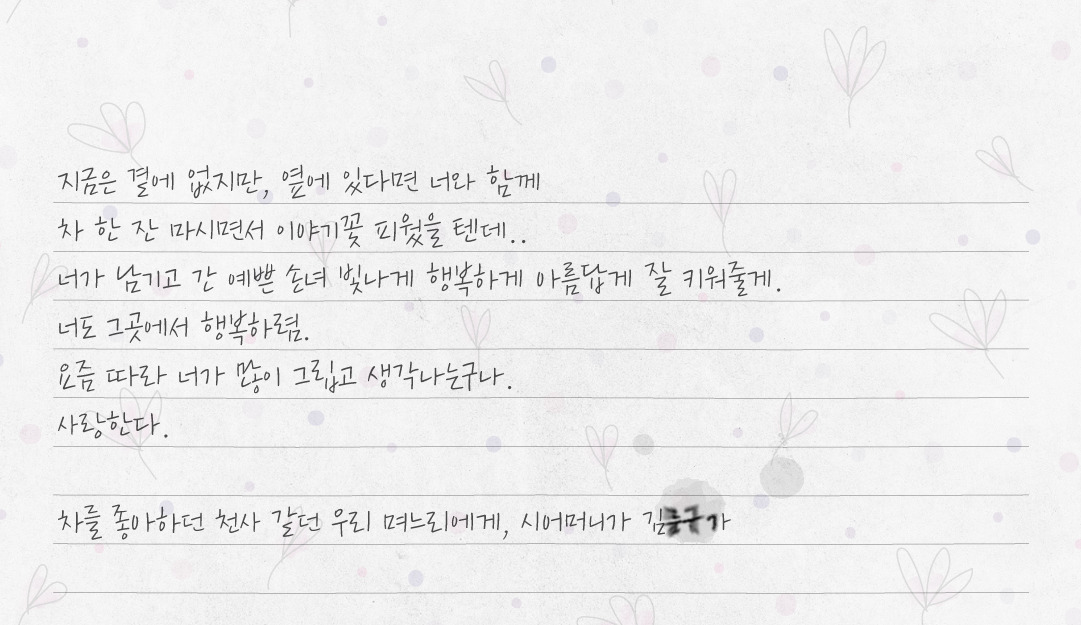 지금은 곁에 없지만, 옆에 있다면 너와 함께
차 한 잔 마시면서 이야기꽃 피웠을 텐데..
너가 남기고 간 예쁜 손녀 빛나게 행복하게 아름답게 잘 키워줄게.
너도 그곳에서 행복하렴.
요즘 따라 너가 많이 그립고 생각나는구나.
사랑한다.
차를 좋아하던 천사 같던 우리 며느리에게, 시어머니가